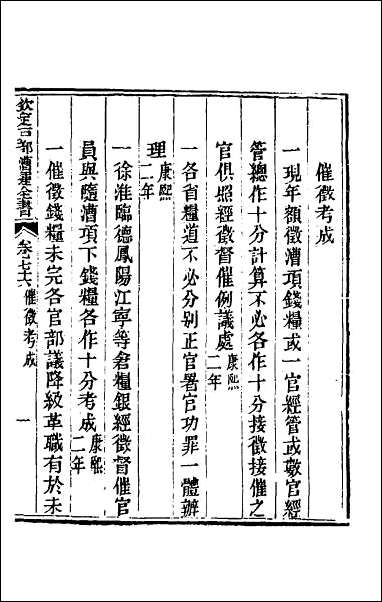 催徵考成
一現年額徵漕項錢糧或一官經管或數官經
管總作十分計算不必各作十分接徵接催之
官俱照經徵督催例議處康熙二年
一各省糧道不必分别正官署官功罪一體辦
理康熙二年
一徐淮臨德鳳陽江寧等倉糧銀經徵督催官
員與隨漕項下錢糧各作十分考成康熙二年
一催徵錢糧未完各官部議降級革職有於未
欽定户部漕運全書 卷八十六 催徵考成 一